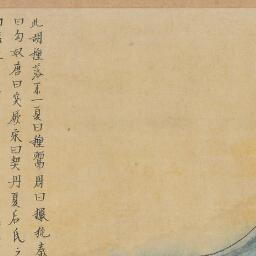 此胡種落不一夏曰種鬻周曰玁狁秦
曰匈奴唐曰突厥宋曰契丹夏后氏之